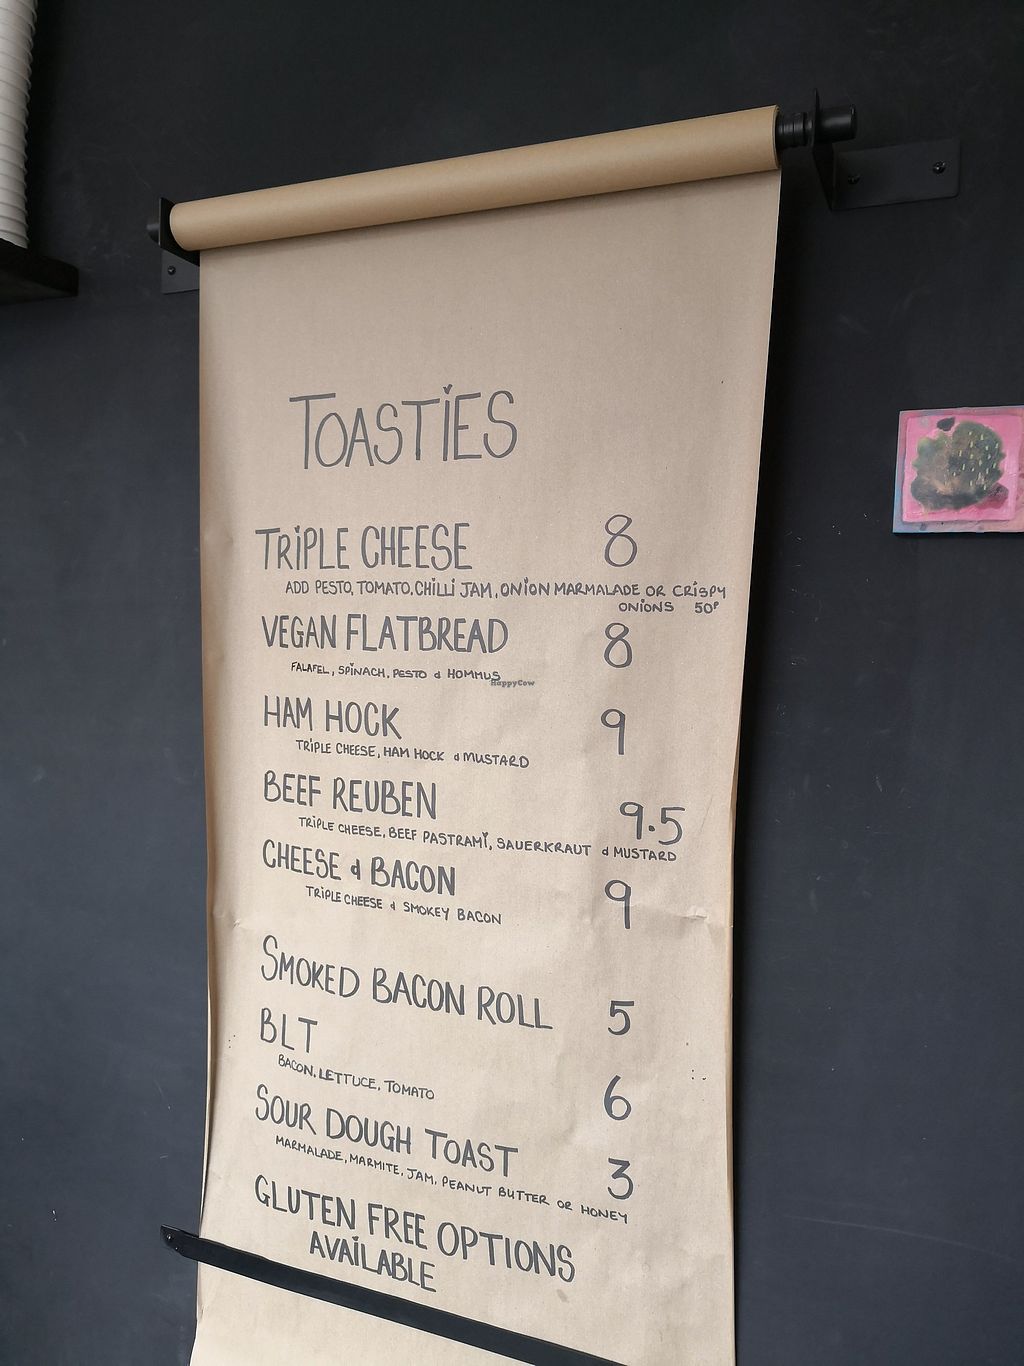 TOASTIES
TRIPLE CHEESE 8
ADD PESTO, TOMATO, CHILLI JAM, ONION MARMALADE OR CRISPY
ONIONS 50P
VEGAN FLATBREAD 8
FALAFEL, SPINACH, PESTO & HOMMUS
HappyCow
HAM HOCK 9
TRIPLE CHEESE, HAM HOCK & MUSTARD
BEEF REUBEN 9.5
TRIPLE CHEESE, BEEF PASTRAMI, SAUERKRAUT & MUSTARD
CHEESE & BACON 9
TRIPLE CHEESE & SMOKEY BACON
SMOKED BACON ROLL 5
BLT 6
BACON, LETTUCE, TOMATO
SOUR DOUGH TOAST 3
MARMALADE, MARMITE, JAM, PEANUT BUTTER OR HONEY
GLUTEN FREE OPTIONS
AVAILABLE